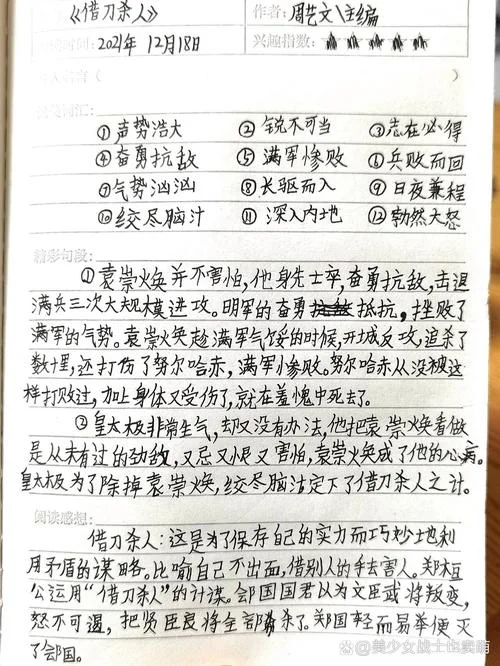 《借刀杀人》 作者：周艺文\主编
时间：2021年12月18日 兴趣指数：★★★★★
词汇：
①声势浩大 ②锐不可当 ③志在必得
④奋勇抗敌 ⑤满军惨败 ⑥兵败而回
⑦气势汹汹 ⑧长驱而入 ⑨日夜兼程
⑩绞尽脑汁 ⑪深入内地 ⑫勃然大怒
精彩句段：
①袁崇焕并不害怕，他身先士卒，奋勇抗敌，击退
满兵三次大规模进攻。明军的奋勇抵抗，挫败了
满军的气势。袁崇焕趁满军气馁的时候，开城反攻，追杀了
数十里，还打伤了努尔哈赤，满军惨败。努尔哈赤从没被这
样打败过，加上身体又受伤了，就在羞愧中死去了。
②皇太极非常生气，却又没有办法，他把袁崇焕看做
是从未有过的劲敌，又忌又恨又害怕，袁崇焕成了他的心病。
皇太极为了除掉袁崇焕，绞尽脑汁定下了借刀杀人之计。
阅读感想：
借刀杀人：这是为了保存自己的实力而巧妙地利
用矛盾的谋略。比喻自己不出面，借别人的手去害人。郑桓
公运用“借刀杀人”的计谋。郐国国君以为文臣武将叛变，
怒不可遏，把贤臣良将全部杀了。郑国轻而易举便灭
了郐国。
@美少女战士也卖萌